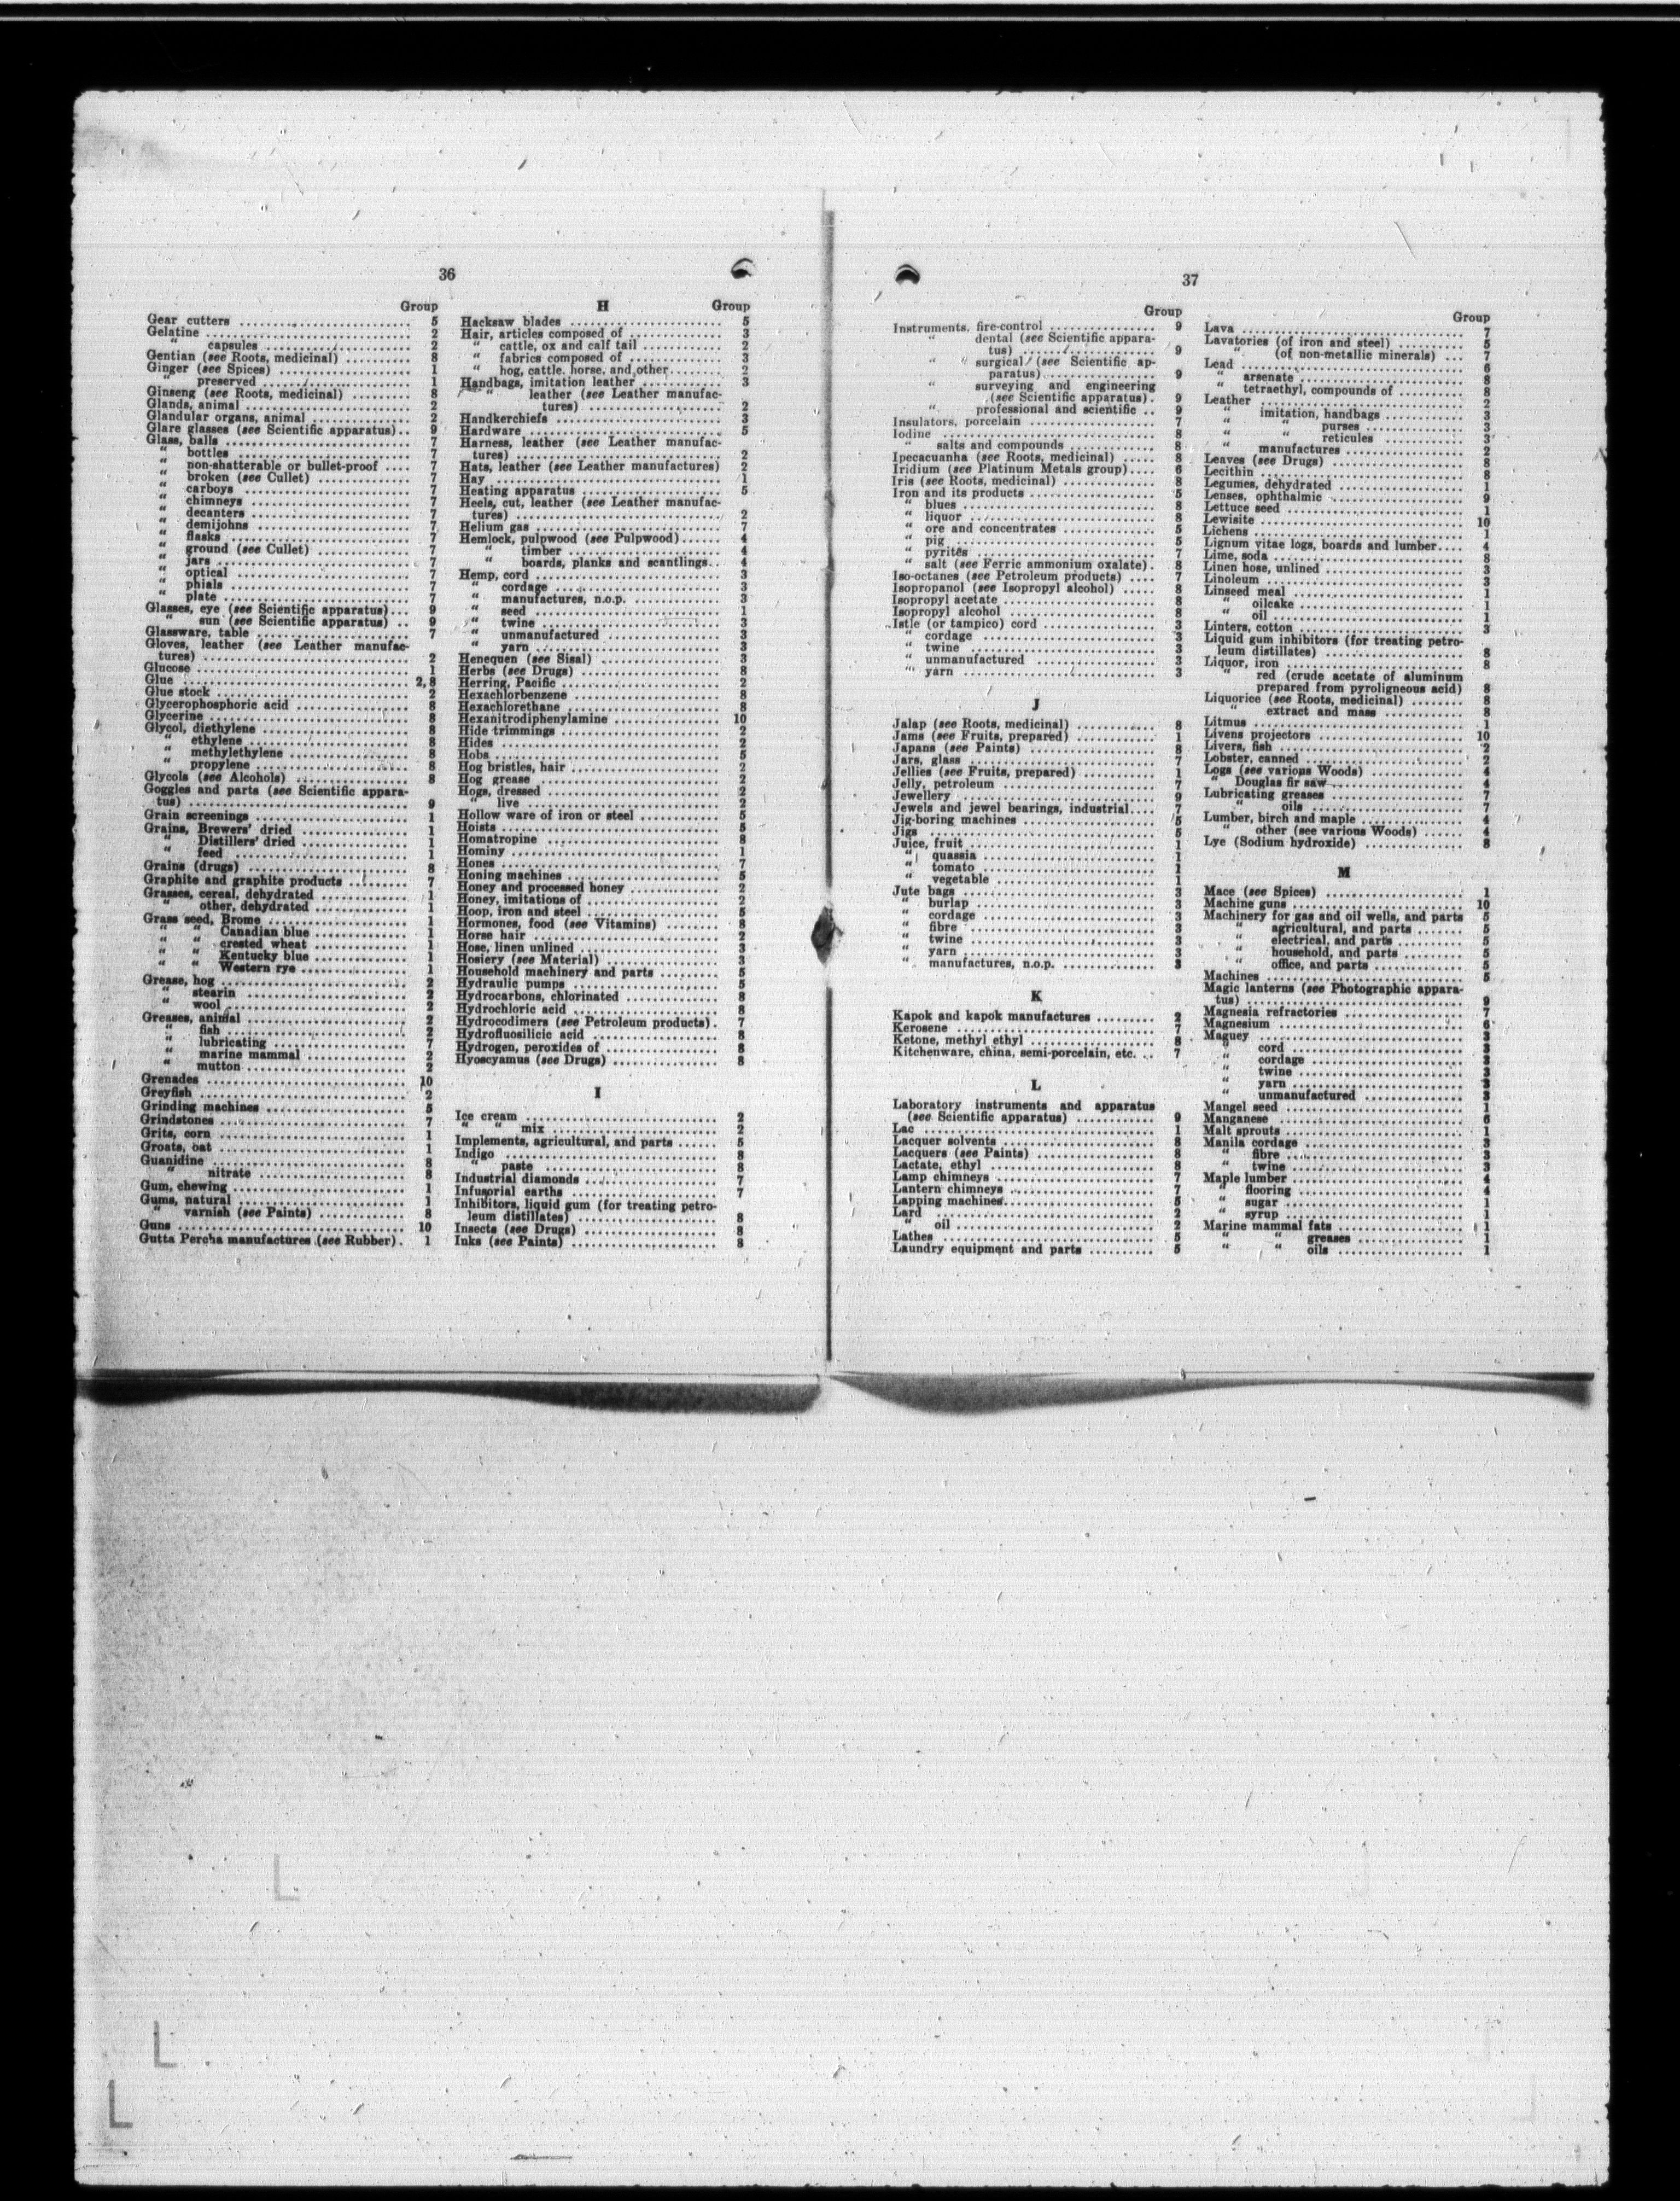 36
Group
Gear cutters ........ 5
Gelatine ........ 2
" capsules ........ 2
Gentian (see Roots, medicinal) ........ 8
Ginger (see Spices) ........ 1
" preserved ........ 1
Ginseng (see Roots, medicinal) ........ 8
Glands, animal ........ 2
Glandular organs, animal ........ 2
Glare glasses (see Scientific apparatus) .. 9
Glass, balls ........ 7
" bottles ........ 7
" non-shatterable or bullet-proof .... 7
" broken (see Cullet) ........ 7
" carboys ........ 7
" chimneys ........ 7
" decanters ........ 7
" demijohns ........ 7
" flasks ........ 7
" ground (see Cullet) ........ 7
" jars ........ 7
" optical ........ 7
" phials ........ 7
" plate ........ 7
Glasses, eye (see Scientific apparatus)... 9
" sun (see Scientific apparatus) .. 9
Glassware, table ........ 7
Gloves, leather (see Leather manufac-
tures) ........ 2
Glucose ........ 1
Glue ........ 2, 8
Glue stock ........ 2
Glycerophosphoric acid ........ 8
Glycerine ........ 8
Glycol, diethylene ........ 8
" ethylene ........ 8
" methylethylene ........ 8
" propylene ........ 8
Glycols (see Alcohols) ........ 8
Goggles and parts (see Scientific appara-
tus) ........ 9
Grain screenings ........ 1
Grains, Brewers' dried ........ 1
" Distillers' dried ........ 1
" feed ........ 1
Grains (drugs) ........ 8
Graphite and graphite products ........ 7
Grasses, cereal, dehydrated ........ 1
" other, dehydrated ........ 1
Grass seed, Brome ........ 1
" " Canadian blue ........ 1
" " crested wheat ........ 1
" " Kentucky blue ........ 1
" " Western rye ........ 1
Grease, hog ........ 2
" stearin ........ 2
" wool ........ 2
Greases, animal ........ 2
" fish ........ 2
" lubricating ........ 7
" marine mammal ........ 2
" mutton ........ 2
Grenades ........ 10
Greyfish ........ 2
Grinding machines ........ 5
Grindstones ........ 7
Grits, corn ........ 1
Groats, oat ........ 1
Guanidine ........ 8
" nitrate ........ 8
Gum, chewing ........ 1
Gums, natural ........ 1
" varnish (see Paints) ........ 8
Guns ........ 10
Gutta Percha manufactures (see Rubber) . 1
H
Group
Hacksaw blades ........ 5
Hair, articles composed of ........ 3
" cattle, ox and calf tail ........ 2
" fabrics composed of ........ 3
" hog, cattle, horse, and other ........ 2
Handbags, imitation leather ........ 3
" leather (see Leather manufac-
tures) ........ 2
Handkerchiefs ........ 3
Hardware ........ 5
Harness, leather (see Leather manufac-
tures) ........ 2
Hats, leather (see Leather manufactures) 2
Hay ........ 1
Heating apparatus ........ 5
Heels, cut, leather (see Leather manufac-
tures) ........ 2
Helium gas ........ 7
Hemlock, pulpwood (see Pulpwood) ...... 4
" timber ........ 4
" boards, planks and scantlings.. 4
Hemp, cord ........ 3
" cordage ........ 3
" manufactures, n.o.p. ........ 3
" seed ........ 1
" twine ........ 3
" unmanufactured ........ 3
" yarn ........ 3
Henequen (see Sisal) ........ 3
Herbs (see Drugs) ........ 8
Herring, Pacific ........ 2
Hexachlorbenzene ........ 8
Hexachlorethane ........ 8
Hexanitrodiphenylamine ........ 10
Hide trimmings ........ 2
Hides ........ 2
Hobs ........ 5
Hog bristles, hair ........ 2
Hog grease ........ 2
Hogs, dressed ........ 2
" live ........ 2
Hollow ware of iron or steel ........ 5
Hoists ........ 5
Homatropine ........ 8
Hominy ........ 1
Hones ........ 7
Honing machines ........ 5
Honey and processed honey ........ 2
Honey, imitations of ........ 2
Hoop, iron and steel ........ 5
Hormones, food (see Vitamins) ........ 8
Horse hair ........ 2
Hose, linen unlined ........ 3
Hosiery (see Material) ........ 3
Household machinery and parts ........ 5
Hydraulic pumps ........ 5
Hydrocarbons, chlorinated ........ 8
Hydrochloric acid ........ 8
Hydrocodimers (see Petroleum products) . 7
Hydrofluosilicic acid ........ 8
Hydrogen, peroxides of ........ 8
Hyoscyamus (see Drugs) ........ 8
I
Ice cream ........ 2
" " mix ........ 2
Implements, agricultural, and parts ...... 5
Indigo ........ 8
" paste ........ 8
Industrial diamonds ........ 7
Infusorial earths ........ 7
Inhibitors, liquid gum (for treating petro-
leum distillates) ........ 8
Insects (see Drugs) ........ 8
Inks (see Paints) ........ 8
37
Group
Instruments, fire-control ........ 9
" dental (see Scientific appara-
tus) ........ 9
" surgical (see Scientific ap-
paratus) ........ 9
" surveying and engineering
(see Scientific apparatus) . 9
" professional and scientific .. 9
Insulators, porcelain ........ 7
Iodine ........ 8
" salts and compounds ........ 8
Ipecacuanha (see Roots, medicinal) ..... 8
Iridium (see Platinum Metals group).... 6
Iris (see Roots, medicinal) ........ 8
Iron and its products ........ 5
" blues ........ 8
" liquor ........ 8
" ore and concentrates ........ 5
" pig ........ 5
" pyrites ........ 7
" salt (see Ferric ammonium oxalate) . 8
Iso-octanes (see Petroleum products) .... 7
Isopropanol (see Isopropyl alcohol) ..... 8
Isopropyl acetate ........ 8
Isopropyl alcohol ........ 8
Istle (or tampico) cord ........ 3
" cordage ........ 3
" twine ........ 3
" unmanufactured ........ 3
" yarn ........ 3
J
Jalap (see Roots, medicinal) ........ 8
Jams (see Fruits, prepared) ........ 1
Japans (see Paints) ........ 8
Jars, glass ........ 7
Jellies (see Fruits, prepared) ........ 1
Jelly, petroleum ........ 7
Jewellery ........ 9
Jewels and jewel bearings, industrial.... 7
Jig-boring machines ........ 5
Jigs ........ 5
Juice, fruit ........ 1
" quassia ........ 1
" tomato ........ 1
" vegetable ........ 1
Jute bags ........ 3
" burlap ........ 3
" cordage ........ 3
" fibre ........ 3
" twine ........ 3
" yarn ........ 3
" manufactures, n.o.p. ........ 3
K
Kapok and kapok manufactures ........ 2
Kerosene ........ 7
Ketone, methyl ethyl ........ 8
Kitchenware, china, semi-porcelain, etc. .. 7
L
Laboratory instruments and apparatus
(see Scientific apparatus) ........ 9
Lac ........ 1
Lacquer solvents ........ 8
Lacquers (see Paints) ........ 8
Lactate, ethyl ........ 8
Lamp chimneys ........ 7
Lantern chimneys ........ 7
Lapping machines ........ 5
Lard ........ 2
" oil ........ 2
Lathes ........ 5
Laundry equipment and parts ........ 5
Group
Lava ........ 7
Lavatories (of iron and steel) ........ 5
" (of non-metallic minerals) ... 7
Lead ........ 6
" arsenate ........ 8
" tetraethyl, compounds of ........ 8
Leather ........ 2
" imitation, handbags ........ 3
" " purses ........ 3
" " reticules ........ 3
" manufactures ........ 2
Leaves (see Drugs) ........ 8
Lecithin ........ 8
Legumes, dehydrated ........ 1
Lenses, ophthalmic ........ 9
Lettuce seed ........ 1
Lewisite ........ 10
Lichens ........ 1
Lignum vitae logs, boards and lumber.... 4
Lime, soda ........ 8
Linen hose, unlined ........ 3
Linoleum ........ 3
Linseed meal ........ 1
" oilcake ........ 1
" oil ........ 1
Linters, cotton ........ 3
Liquid gum inhibitors (for treating petro-
leum distillates) ........ 8
Liquor, iron ........ 8
" red (crude acetate of aluminum
prepared from pyroligneous acid) 8
Liquorice (see Roots, medicinal) ........ 8
" extract and mass ........ 8
Litmus ........ 1
Livens projectors ........ 10
Livers, fish ........ 2
Lobster, canned ........ 2
Logs (see various Woods) ........ 4
" Douglas fir saw ........ 4
Lubricating greases ........ 7
" oils ........ 7
Lumber, birch and maple ........ 4
" other (see various Woods) ...... 4
Lye (Sodium hydroxide) ........ 8
M
Mace (see Spices) ........ 1
Machine guns ........ 10
Machinery for gas and oil wells, and parts 5
" agricultural, and parts ........ 5
" electrical, and parts ........ 5
" household, and parts ........ 5
" office, and parts ........ 5
Machines ........ 5
Magic lanterns (see Photographic appara-
tus) ........ 9
Magnesia refractories ........ 7
Magnesium ........ 6
Maguey ........ 3
" cord ........ 3
" cordage ........ 3
" twine ........ 3
" yarn ........ 3
" unmanufactured ........ 3
Mangel seed ........ 1
Manganese ........ 6
Malt sprouts ........ 1
Manila cordage ........ 3
" fibre ........ 3
" twine ........ 3
Maple lumber ........ 4
" flooring ........ 4
" sugar ........ 1
" syrup ........ 1
Marine mammal fats ........ 1
" " greases ........ 1
" " oils ........ 1